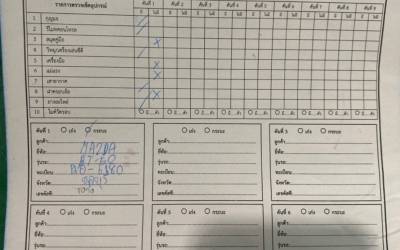 รายการตรวจเช็คอุปกรณ์ คันที่ 1 คันที่ 2 คันที่ 3 คันที่ 4 คันที่ 5 คันที่ 6 คันที่ 7 คันที่ 8 คันที่ 9
1 กุญแจ
2 รีโมทคอนโทรล
3 สมุดคู่มือ
4 วิทยุ/เครื่องเล่นซีดี
5 เครื่องมือ
6 แม่แรง
7 เสาอากาศ
8 ฝาครอบล้อ
9 ยางอะไหล่
10 ไมค์วัดรอบ
คันที่ 1 เก๋ง กระบะ
ลูกค้า:
ยี่ห้อ: MAZDA
รุ่นรถ:
ทะเบียน:
จังหวัด:
เลขตัวถัง:
คันที่ 2 เก๋ง กระบะ
ลูกค้า:
ยี่ห้อ:
รุ่นรถ:
ทะเบียน:
จังหวัด:
เลขตัวถัง:
คันที่ 3 เก๋ง กระบะ
ลูกค้า:
ยี่ห้อ:
รุ่นรถ:
ทะเบียน:
จังหวัด:
เลขตัวถัง:
คันที่ 4 เก๋ง กระบะ
ลูกค้า:
ยี่ห้อ:
รุ่นรถ:
คันที่ 5 เก๋ง กระบะ
ลูกค้า:
ยี่ห้อ:
รุ่นรถ:
คันที่ 6 เก๋ง กระบะ
ลูกค้า:
ยี่ห้อ:
รุ่นรถ: